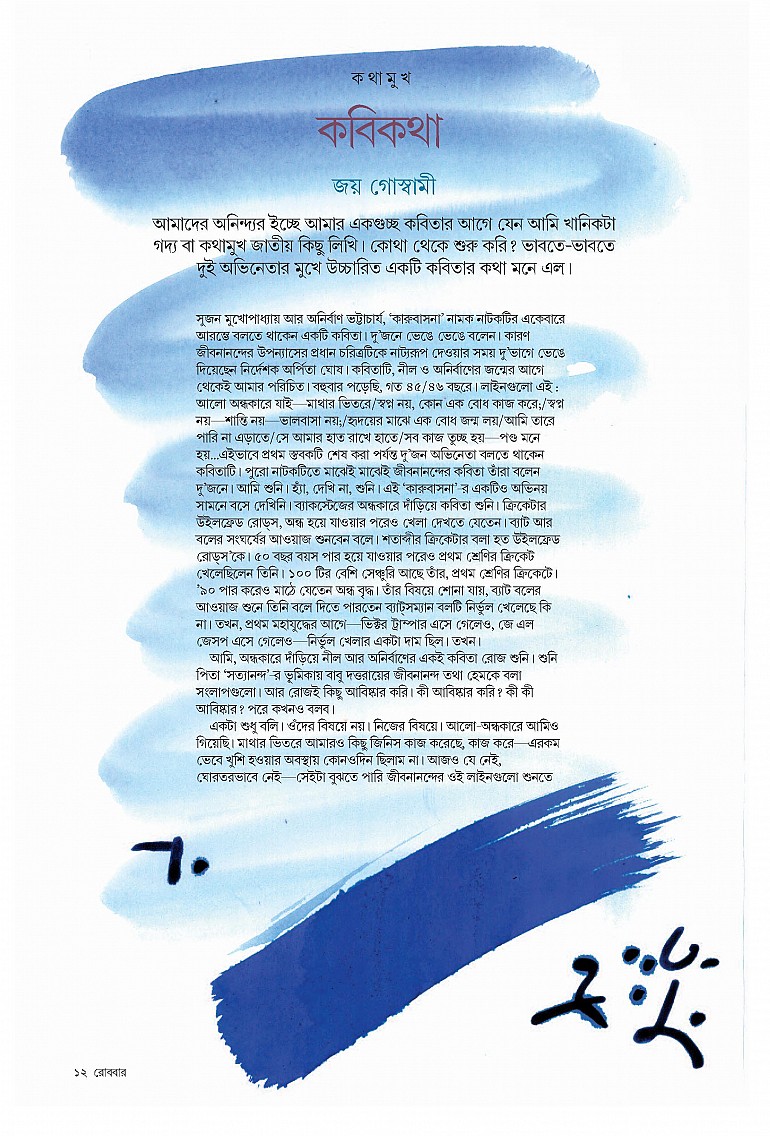 কথামুখ
কবিকথা
জয় গোস্বামী
আমাদের অনিন্দ্যর ইচ্ছে আমার একগুচ্ছ কবিতার আগে যেন আমি খানিকটা
গদ্য বা কথামুখ জাতীয় কিছু লিখি। কোথা থেকে শুরু করি? ভাবতে-ভাবতে
দুই অভিনেতার মুখে উচ্চারিত একটি কবিতার কথা মনে এল।
সুজন মুখোপাধ্যায় আর অনির্বাণ ভট্টাচার্য, ‘কারুবাসনা’ নামক নাটকটির একেবারে
আরম্ভে বলতে থাকেন একটি কবিতা। দু’জনে ভেঙে ভেঙে বলেন। কারণ
জীবনানন্দের উপন্যাসের প্রধান চরিত্রটিকে নাট্যরূপ দেওয়ার সময় দু’ভাগে ভেঙে
দিয়েছেন নির্দেশক অর্পিতা ঘোষ। কবিতাটি, নীল ও অনির্বাণের জন্মের আগে
থেকেই আমার পরিচিত। বহুবার পড়েছি, গত ৪৫/৪৬ বছরে। লাইনগুলো এই :
আলো অন্ধকারে যাই—মাথার ভিতরে/স্বপ্ন নয়, কোন এক বোধ কাজ করে;/স্বপ্ন
নয়—শান্তি নয়—ভালবাসা নয়;/হৃদয়ের মাঝে এক বোধ জন্ম লয়/আমি তারে
পারি না এড়াতে/সে আমার হাত রাখে হাতে/সব কাজ তুচ্ছ হয়—পণ্ড মনে
হয়...এইভাবে প্রথম স্তবকটি শেষ করা পর্যন্ত দু’জন অভিনেতা বলতে থাকেন
কবিতাটি। পুরো নাটকটিতে মাঝেই মাঝেই জীবনানন্দের কবিতা তাঁরা বলেন
দু’জনে। আমি শুনি। হ্যাঁ, দেখি না, শুনি। এই ‘কারুবাসনা’-র একটিও অভিনয়
সামনে বসে দেখিনি। ব্যাকস্টেজের অন্ধকারে দাঁড়িয়ে কবিতা শুনি। ক্রিকেটার
উইলফ্রেড রোড্‌স, অন্ধ হয়ে যাওয়ার পরেও খেলা দেখতে যেতেন। ব্যাট আর
বলের সংঘর্ষের আওয়াজ শুনবেন বলে। শতাব্দীর ক্রিকেটার বলা হত উইলফ্রেড
রোড্‌স’কে। ৫০ বছর বয়স পার হয়ে যাওয়ার পরেও প্রথম শ্রেণির ক্রিকেট
খেলেছিলেন তিনি। ১০০ টির বেশি সেঞ্চুরি আছে তাঁর, প্রথম শ্রেণির ক্রিকেটে।
’৯০ পার করেও মাঠে যেতেন অন্ধ বৃদ্ধ। তাঁর বিষয়ে শোনা যায়, ব্যাট বলের
আওয়াজ শুনে তিনি বলে দিতে পারতেন ব্যাট্‌সম্যান বলটি নির্ভুল খেলেছে কি
না। তখন, প্রথম মহাযুদ্ধের আগে—ভিক্টর ট্রাম্পার এসে গেলেও, জে এল
জেসপ এসে গেলেও—নির্ভুল খেলার একটা দাম ছিল। তখন।
আমি, অন্ধকারে দাঁড়িয়ে নীল আর অনির্বাণের একই কবিতা রোজ শুনি। শুনি
পিতা ‘সত্যানন্দ’-র ভূমিকায় বাবু দত্তরায়ের জীবনানন্দ তথা হেমকে বলা
সংলাপগুলো। আর রোজই কিছু আবিষ্কার করি। কী আবিষ্কার করি? কী কী
আবিষ্কার? পরে কখনও বলব।
একটা শুধু বলি। ওঁদের বিষয়ে নয়। নিজের বিষয়ে। আলো-অন্ধকারে আমিও
গিয়েছি। মাথার ভিতরে আমারও কিছু জিনিস কাজ করেছে, কাজ করে—এরকম
ভেবে খুশি হওয়ার অবস্থায় কোনওদিন ছিলাম না। আজও যে নেই,
ঘোরতরভাবে নেই—সেইটা বুঝতে পারি জীবনানন্দের ওই লাইনগুলো শুনতে
১২ রোববার